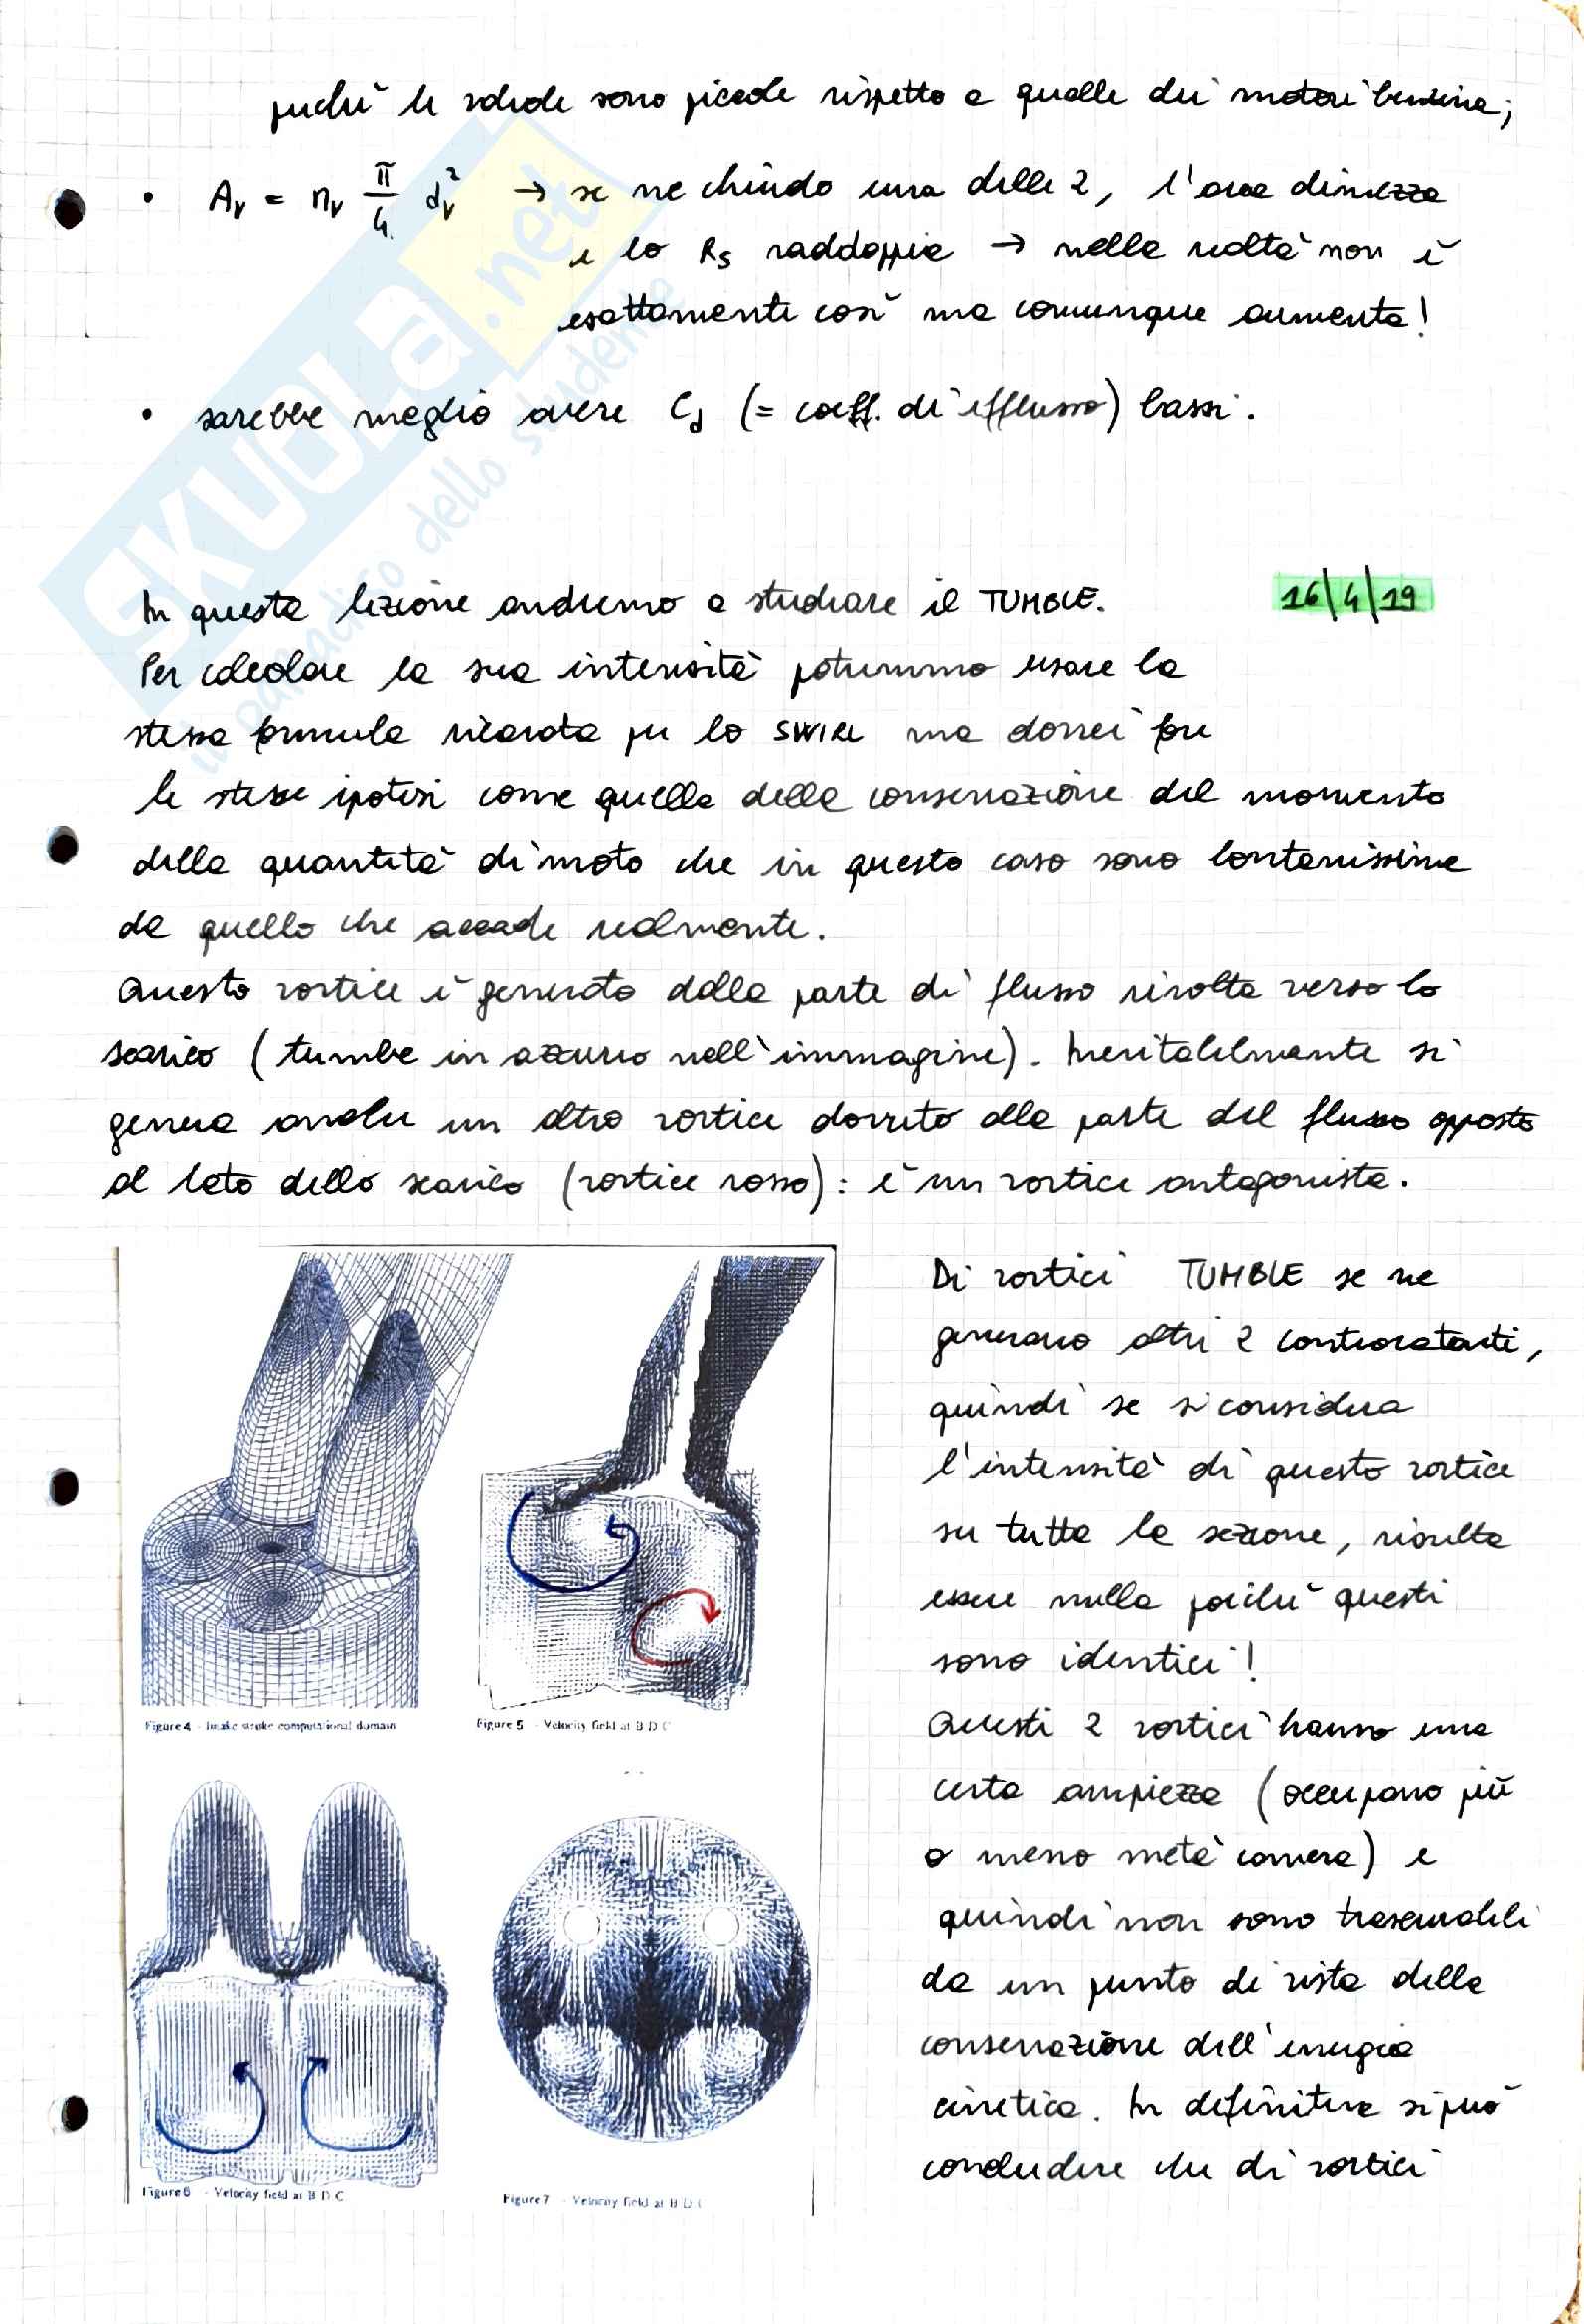 perché le valvole sono piccole rispetto a quelle dei motori benzina;
• Av = nv π/4 dv² → se ne chiudo una delle 2, l'area dimezza
e lo Rs raddoppia → nella realtà non è
esattamente così ma comunque aumenta!
• sarebbe meglio avere Cd (= coeff. di efflusso) bassi.
SKUOLA.net
il paradiso dello studente
In questa lezione andremo a studiare il TUMBLE.
16/4/19
Per calcolare la sua intensità potremmo usare la
stessa formula ricavata per lo SWIRL ma dovrei fare
le stesse ipotesi come quella della conservazione del momento
della quantità di moto che in questo caso sono lontanissime
da quello che accade realmente.
Questo vortice è generato dalla parte di flusso rivolta verso lo
scarico (tumbe in azzurro nell'immagine). Inevitabilmente si
genera anche un altro vortice dovuto alla parte del flusso opposto
al lato dello scarico (vortice rosso): è un vortice antagonista.
Di vortici TUMBLE se ne
generano altri 2 controrotanti,
quindi se si considera
l'intensità di questo vortice
su tutta la sezione, risulta
essere nulla poiché questi
sono identici!
Questi 2 vortici hanno una
certa ampiezza (occupano più
o meno metà camera) e
quindi non sono trascurabili
da un punto di vista della
conservazione dell'energia
cinetica. In definitiva si può
concludere che di vortici
Figure 4 - Intake stroke computational domain
Figure 5 - Velocity field at B D C
Figure 6 - Velocity field at B D C
Figure 7 - Velocity field at B D C